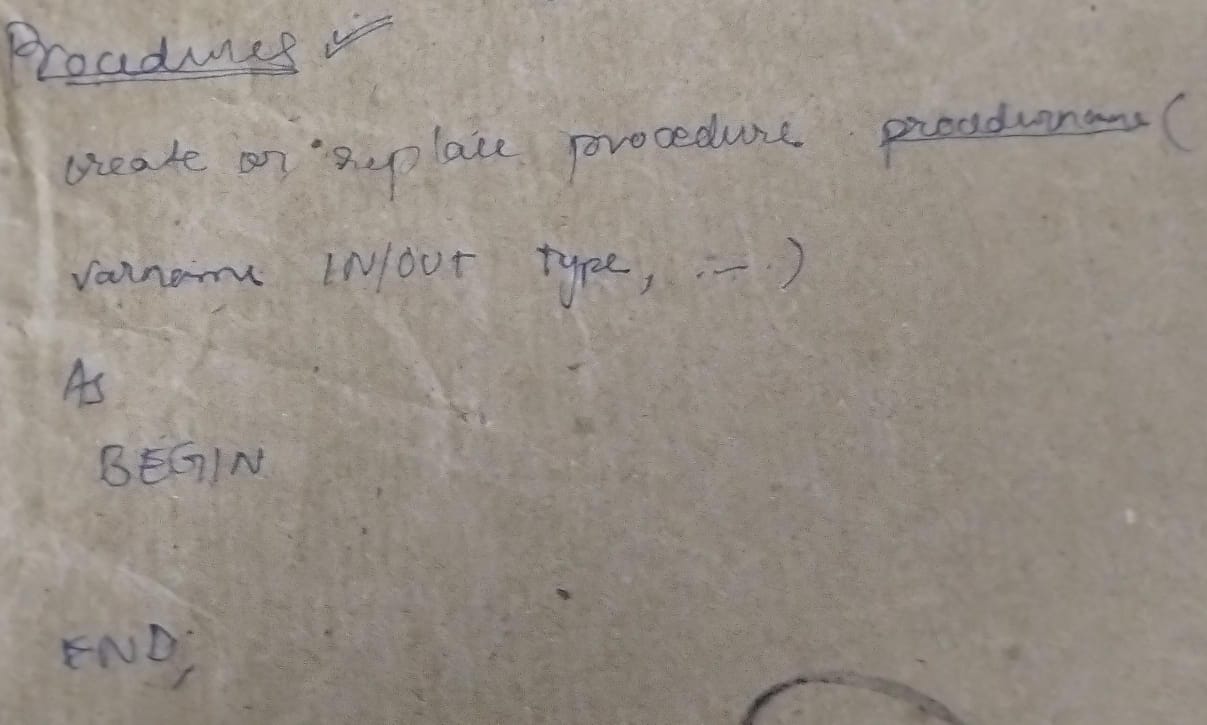 Procedures
create or replace procedure procedurname (
varname IN/OUT type, ...)
As
BEGIN
END;